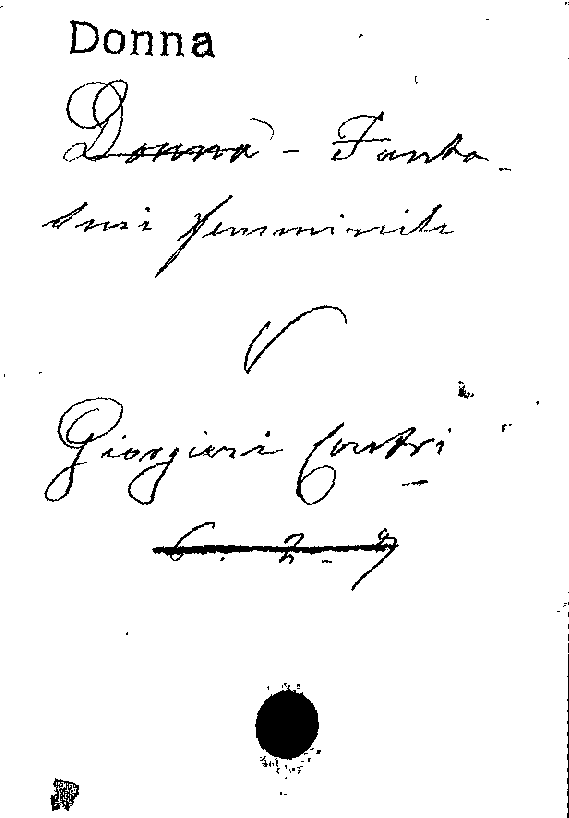 Donna
Donna - Fanta-
smi femminili
Giorgieri Contri
6. 2. 9